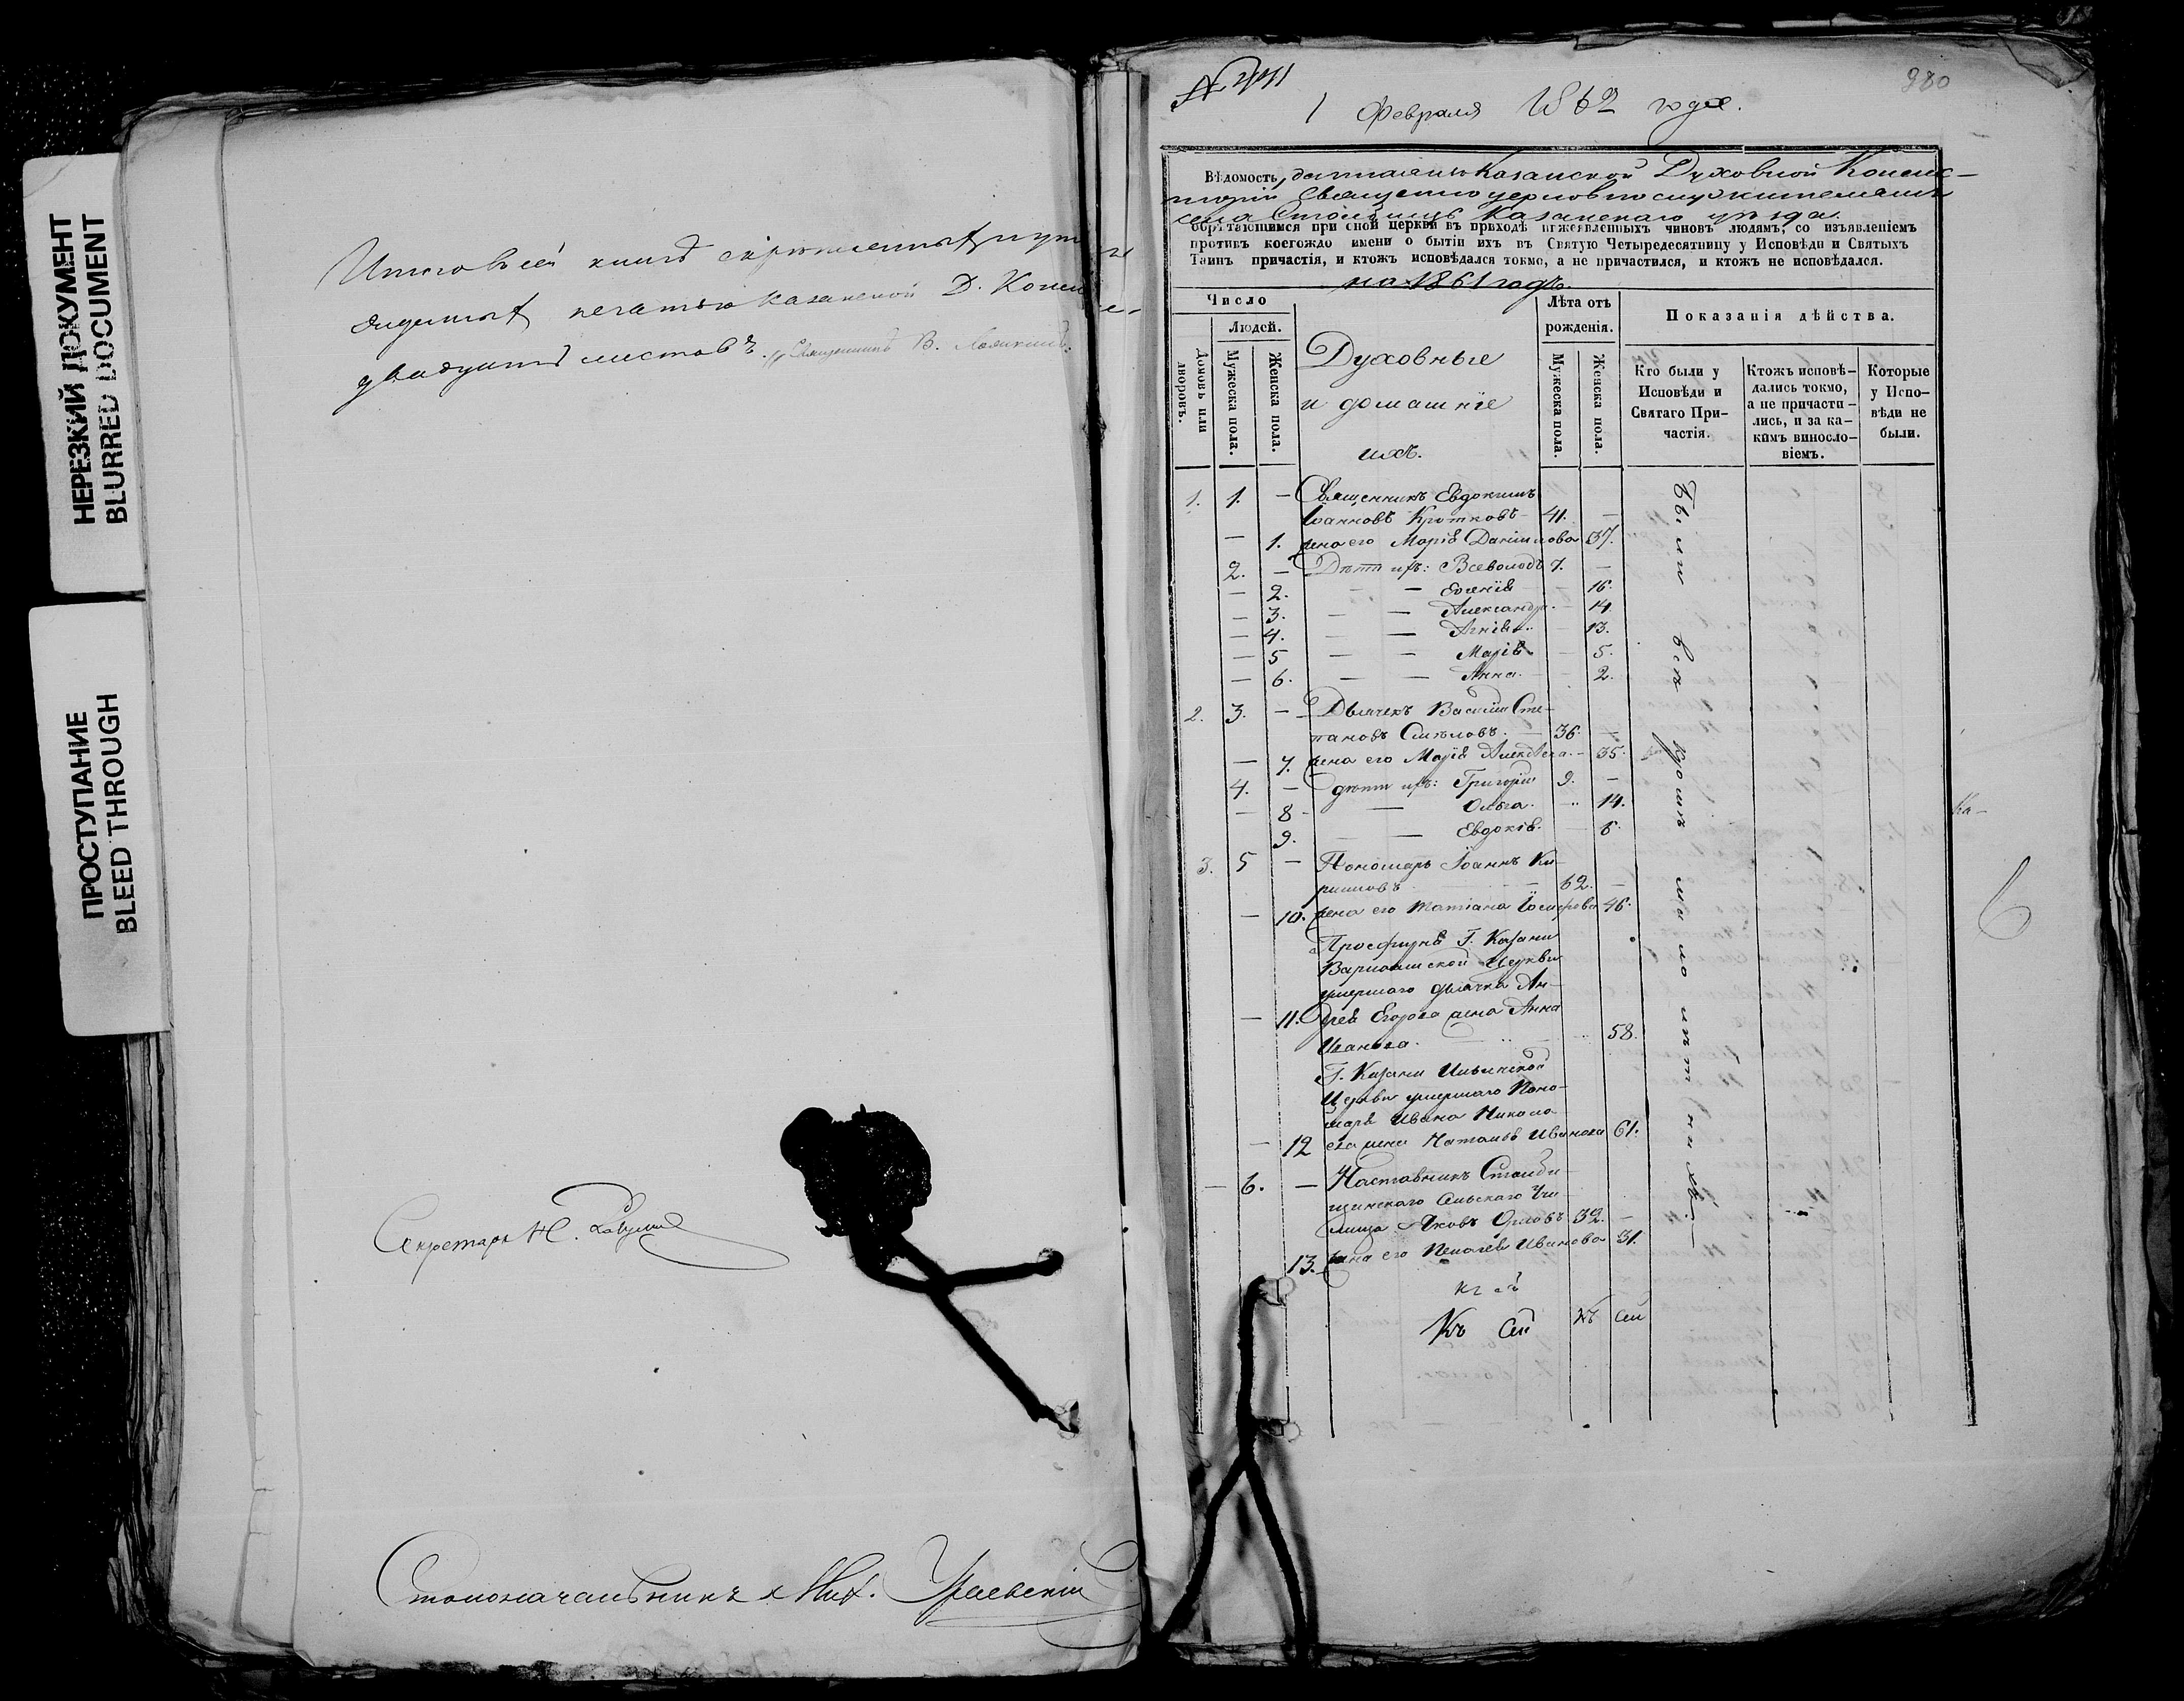 НЕРЕЗКИЙ ДОКУМЕНТ
BLURRED DOCUMENT
ПРОСТУПАНИЕ
BLEED THROUGH
Итого въ сей книгѣ скрѣпленныхъ
печатью Казанской Д.
двадцать листовъ. Священникъ В.
Секретарь Н.
Столоначальникъ Мих.
№ 2441
980
1 Февраля 1862 года.
Вѣдомость, Казанской Духовной Консис-
торіи Священно церковно служителями
села Столбищъ Казанскаго уѣзда.
обрѣтающимся при оной церкви въ приходѣ нижеявленныхъ чиновъ людямъ, со изъявленіемъ
противъ коегождо имени о бытіи ихъ въ Святую Четыредесятницу у Исповѣди и Святыхъ
Таинъ причастія, и ктожъ исповѣдался токмо, а не причастился, и ктожъ не исповѣдался.
на 1861 годъ.
Число
Людей.
Домовъ или дворовъ.
Мужеска пола.
Женска пола.
Духовные
и домашніе
ихъ.
Лѣта отъ
рожденія.
Мужеска пола.
Женска пола.
Показанія дѣйства.
Кто были у
Исповѣди и
Святаго При-
частія.
Ктожъ исповѣ-
дались токмо,
а не причасти-
лись, и за ка-
кимъ винosло-
віемъ.
Которые
у Испо-
вѣди не
были.
1. 1. — Священникъ Евдокимъ
Іоанновъ Кротковъ — 41. —
— 1. жена его Марія Даніилова 37.
2. — Дѣти ихъ: Всеволодъ 7. —
— 2. — — Евгенія — 16.
— 3. — — Александра — 14.
— 4. — — Агнія — 13.
— 5 — — Марія — 5.
— 6. — — Анна — 2.
2. 3. — Дьячекъ Василій Сте-
пановъ Смѣловъ. — 36. —
— 7. жена его Марія Алексѣева — 35.
4. — дѣти ихъ: Григорій 9. —
— 8 — Ольга. 14.
9. — — Евдокія. — 6.
3. 5 — Пономарь Іоаннъ Ки-
рилловъ — 62. —
— 10. жена его Татіана Іосифова 46.
Просфирня Г. Казани
Варлаамской Церкви
умершаго дьячка Ан-
— 11. дрея Егорова жена Анна
Иванова. 58.
Г. Казани Ильинской
Церкви умершаго Поно-
маря Ивана Никола-
— 12 ева жена Наталья Иванова 61.
— 6. — Наставникъ Столби-
щинскаго Сельскаго Учи-
лища Яковъ Орловъ 32. —
13. жена его Пелагея Иванова 31.
Къ сей
Къ сей
Были всѣ кромѣ малолѣтнихъ.
Ка-
6